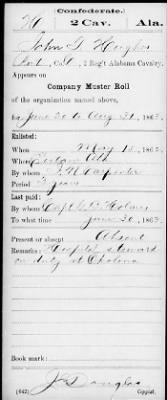 Confederate.
H 2 Cav. Ala.
John T. Hughes
Pvt, Co. , 2 Reg't Alabama Cavalry.
Appears on
Company Muster Roll
of the organization named above,
for June 30 to Aug 31, 1863.
Enlisted:
When May 13, 1862.
Where Ala
By whom Carpenter
Period 3 years
Last paid:
By whom Capt
To what time June 30, 1863.
Present or absent Absent
Remarks: Hospital steward
on duty at
Book mark:
J Douglas
(642) Copyist.